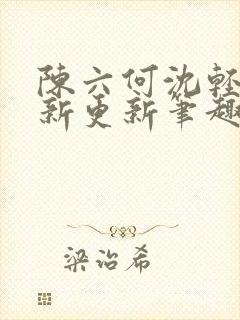 陳六何沈輕
新更新筆趣
梁治希